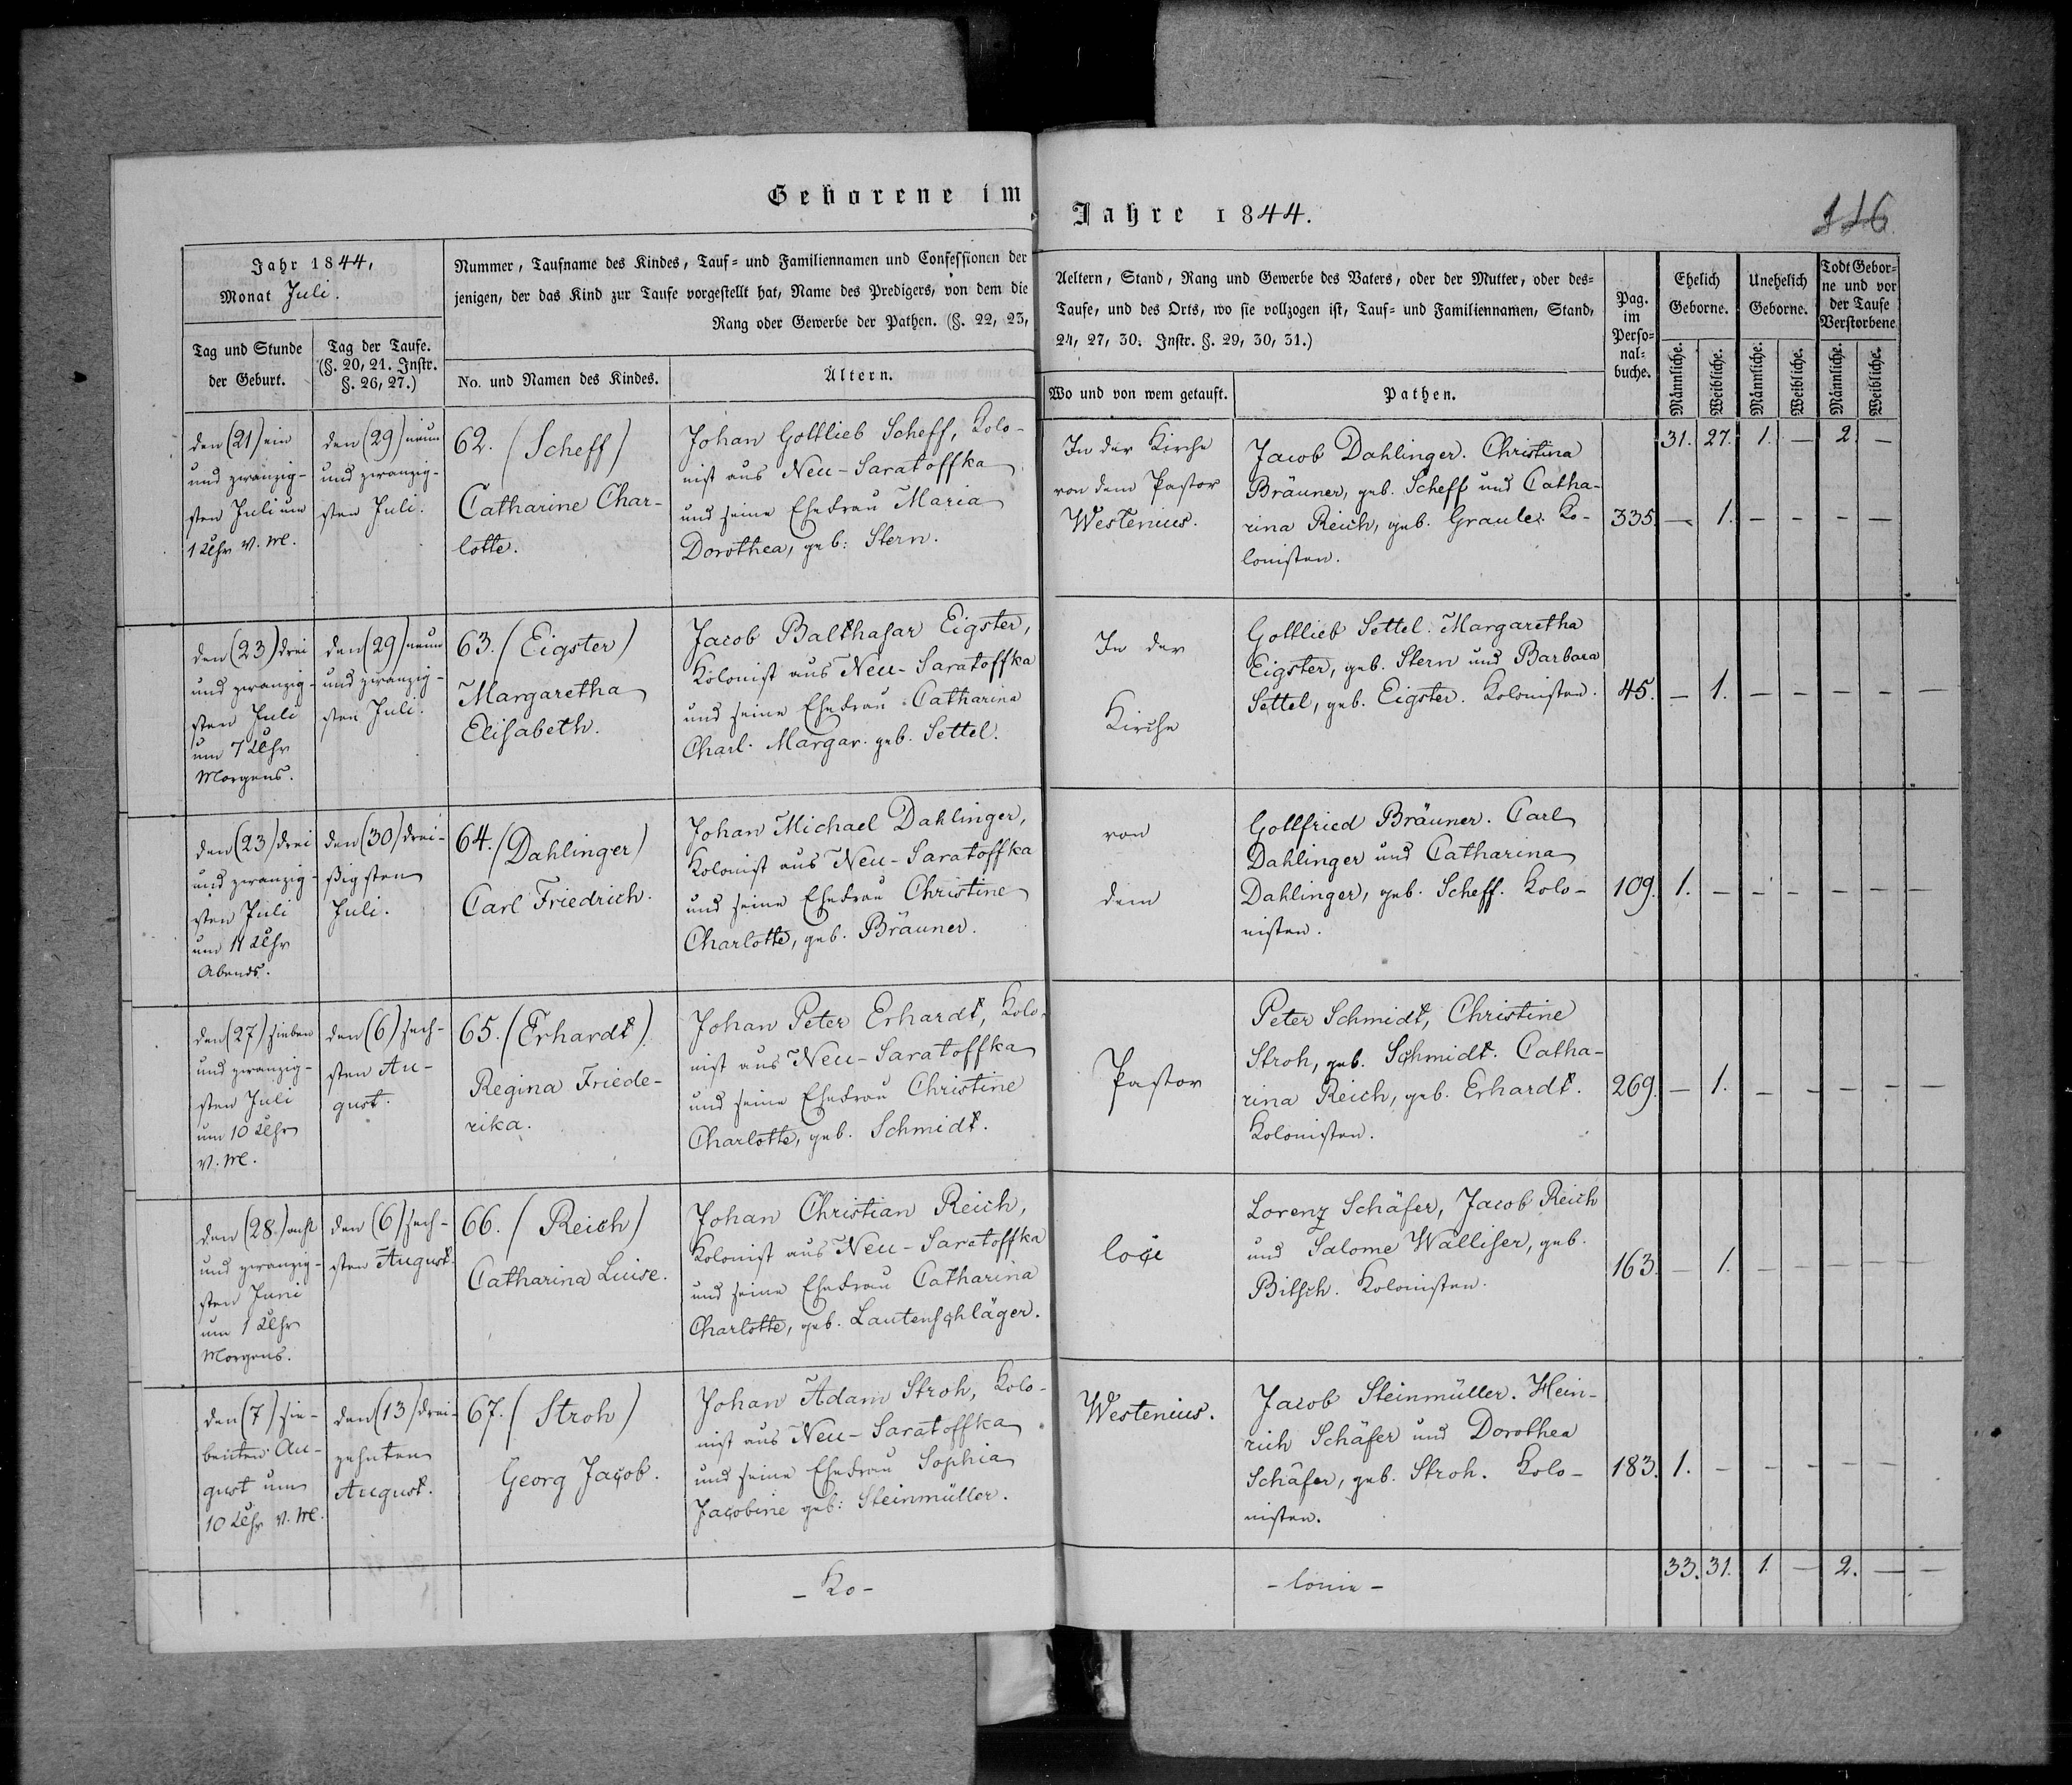 Geborene im
Jahre 1844.
116.
Jahr 1844,
Monat Juli.
Tag und Stunde
der Geburt.
Tag der Taufe.
(§. 20, 21. Instr.
§. 26, 27.)
Nummer, Taufname des Kindes, Tauf- und Familiennamen und Confessionen der
jenigen, der das Kind zur Taufe vorgestellt hat, Name des Predigers, von dem die
Rang oder Gewerbe der Pathen. (§. 22, 23,
No. und Namen des Kindes.
Ältern.
Aeltern, Stand, Rang und Gewerbe des Vaters, oder der Mutter, oder des-
Taufe, und des Orts, wo sie vollzogen ist, Tauf- und Familiennamen, Stand,
24, 27, 30. Instr. §. 29, 30, 31.)
Wo und von wem getauft.
Pathen.
Pag.
im
Perso-
nal-
buche.
Ehelich
Geborne.
Unehelich
Geborne.
Todt Gebor-
ne und vor
der Taufe
Verstorbene
Männliche.
Weibliche.
Männliche.
Weibliche.
Männliche.
Weibliche.
31. 27. 1. — 2. —
den (21) ein
und zwanzig-
sten Juli um
1 Uhr V. M.
den (29) neun
und zwanzig-
sten Juli.
62. (Scheff)
Catharine Char-
lotte.
Johan Gottlieb Scheff, Kolo-
nist aus Neu-Saratoffka
und seine Ehefrau Maria
Dorothea, geb: Stern.
In der Kirche
von dem Pastor
Westenius.
Jacob Dahlinger. Christina
Bräuner, geb. Scheff und Catha-
rina Reich, geb. Graule. Ko-
lonisten.
335. — 1. — — — —
den (23) drei
und zwanzig-
sten Juli
um 7 Uhr
Morgens.
den (29) neun
und zwanzig-
sten Juli.
63. (Eigster)
Margaretha
Elisabeth.
Jacob Balthasar Eigster,
Kolonist aus Neu-Saratoffka
und seine Ehefrau Catharina
Charl. Margar. geb. Settel.
In der
Kirche
Gottlieb Settel. Margaretha
Eigster, geb. Stern und Barbara
Settel, geb. Eigster. Kolonisten.
45. — 1. — — — — —
den (23) drei
und zwanzig-
sten Juli
um 11 Uhr
Abends.
den (30) drei-
ßigsten
Juli.
64. (Dahlinger)
Carl Friedrich.
Johan Michael Dahlinger,
Kolonist aus Neu-Saratoffka
und seine Ehefrau Christine
Charlotte, geb. Bräuner.
von
dem
Gottfried Bräuner. Carl
Dahlinger und Catharina
Dahlinger, geb. Scheff. Kolo-
nisten.
109. 1. — — — — — —
den (27) sieben
und zwanzig-
sten Juli
um 10 Uhr
V. M.
den (6) sech-
sten Au-
gust.
65. (Erhardt)
Regina Friede-
rika.
Johan Peter Erhardt, Kolo-
nist aus Neu-Saratoffka
und seine Ehefrau Christine
Charlotte, geb. Schmidt.
Pastor
Peter Schmidt, Christine
Stroh, geb. Schmidt. Catha-
rina Reich, geb. Erhardt.
Kolonisten.
269. — 1. — — — — —
den (28.) acht
und zwanzig-
sten Juni
um 1 Uhr
Morgens.
den (6) sech-
sten August.
66. (Reich)
Catharina Luise.
Johan Christian Reich,
Kolonist aus Neu-Saratoffka
und seine Ehefrau Catharina
Charlotte, geb. Lautenschläger.
loci
Lorenz Schäfer, Jacob Reich
und Salome Walliser, geb.
Bitsch. Kolonisten.
163. — 1. — — — — —
den (7) sie-
benten Au-
gust um
10 Uhr V. M.
den (13) drei-
zehnten
August.
67. (Stroh)
Georg Jacob.
Johan Adam Stroh, Kolo-
nist aus Neu-Saratoffka
und seine Ehefrau Sophia
Jacobine geb: Steinmüller.
Westenius.
Jacob Steinmüller. Hein-
rich Schäfer und Dorothea
Schäfer, geb. Stroh. Kolo-
nisten.
183. 1. — — — — —
- Ko -
- lonie -
33. 31. 1. — 2. — —